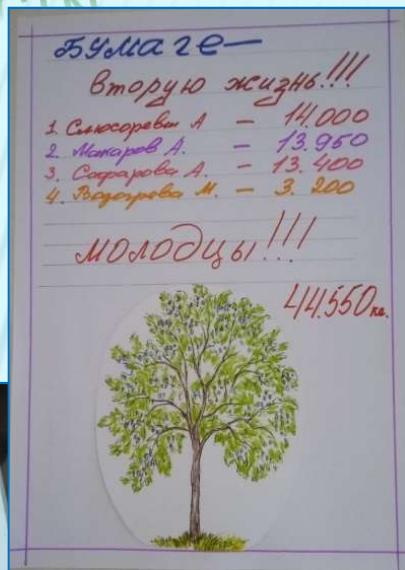 БУМАГЕ—
вторую жизнь!!!
1. Слюсарева А – 14.000
2. Макаров А. – 13.950
3. Сафарова А. – 13.400
4. Водогрева М. – 3.200
МОЛОДЦЫ!!!
44.550 кг.